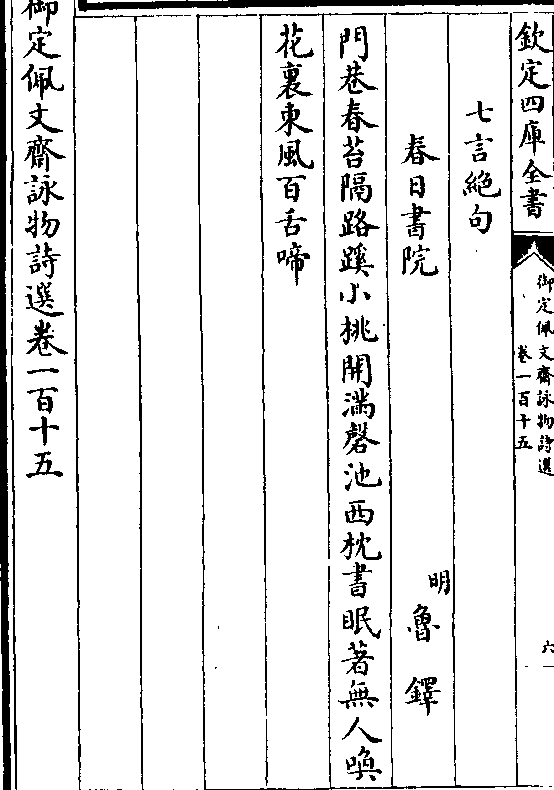 欽定四庫全書
御定佩文齋詠物詩選
卷一百十五
六
七言絶句
春日書院
明
魯鐸
門巷春苔隔路蹊小桃開滿磬池西枕書眠著無人喚
花裏東風百舌啼
御定佩文齋詠物詩選卷一百十五